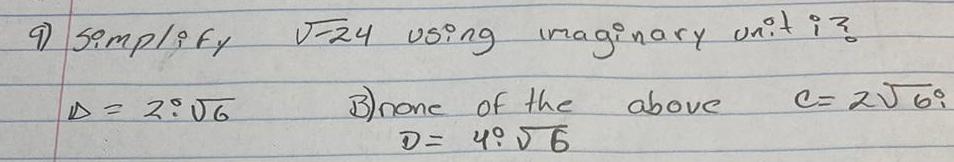 9) simplify √-24 using imaginary unit i?
A = 2i√6 B) none of the above C = 2√6i
D = 4i√6